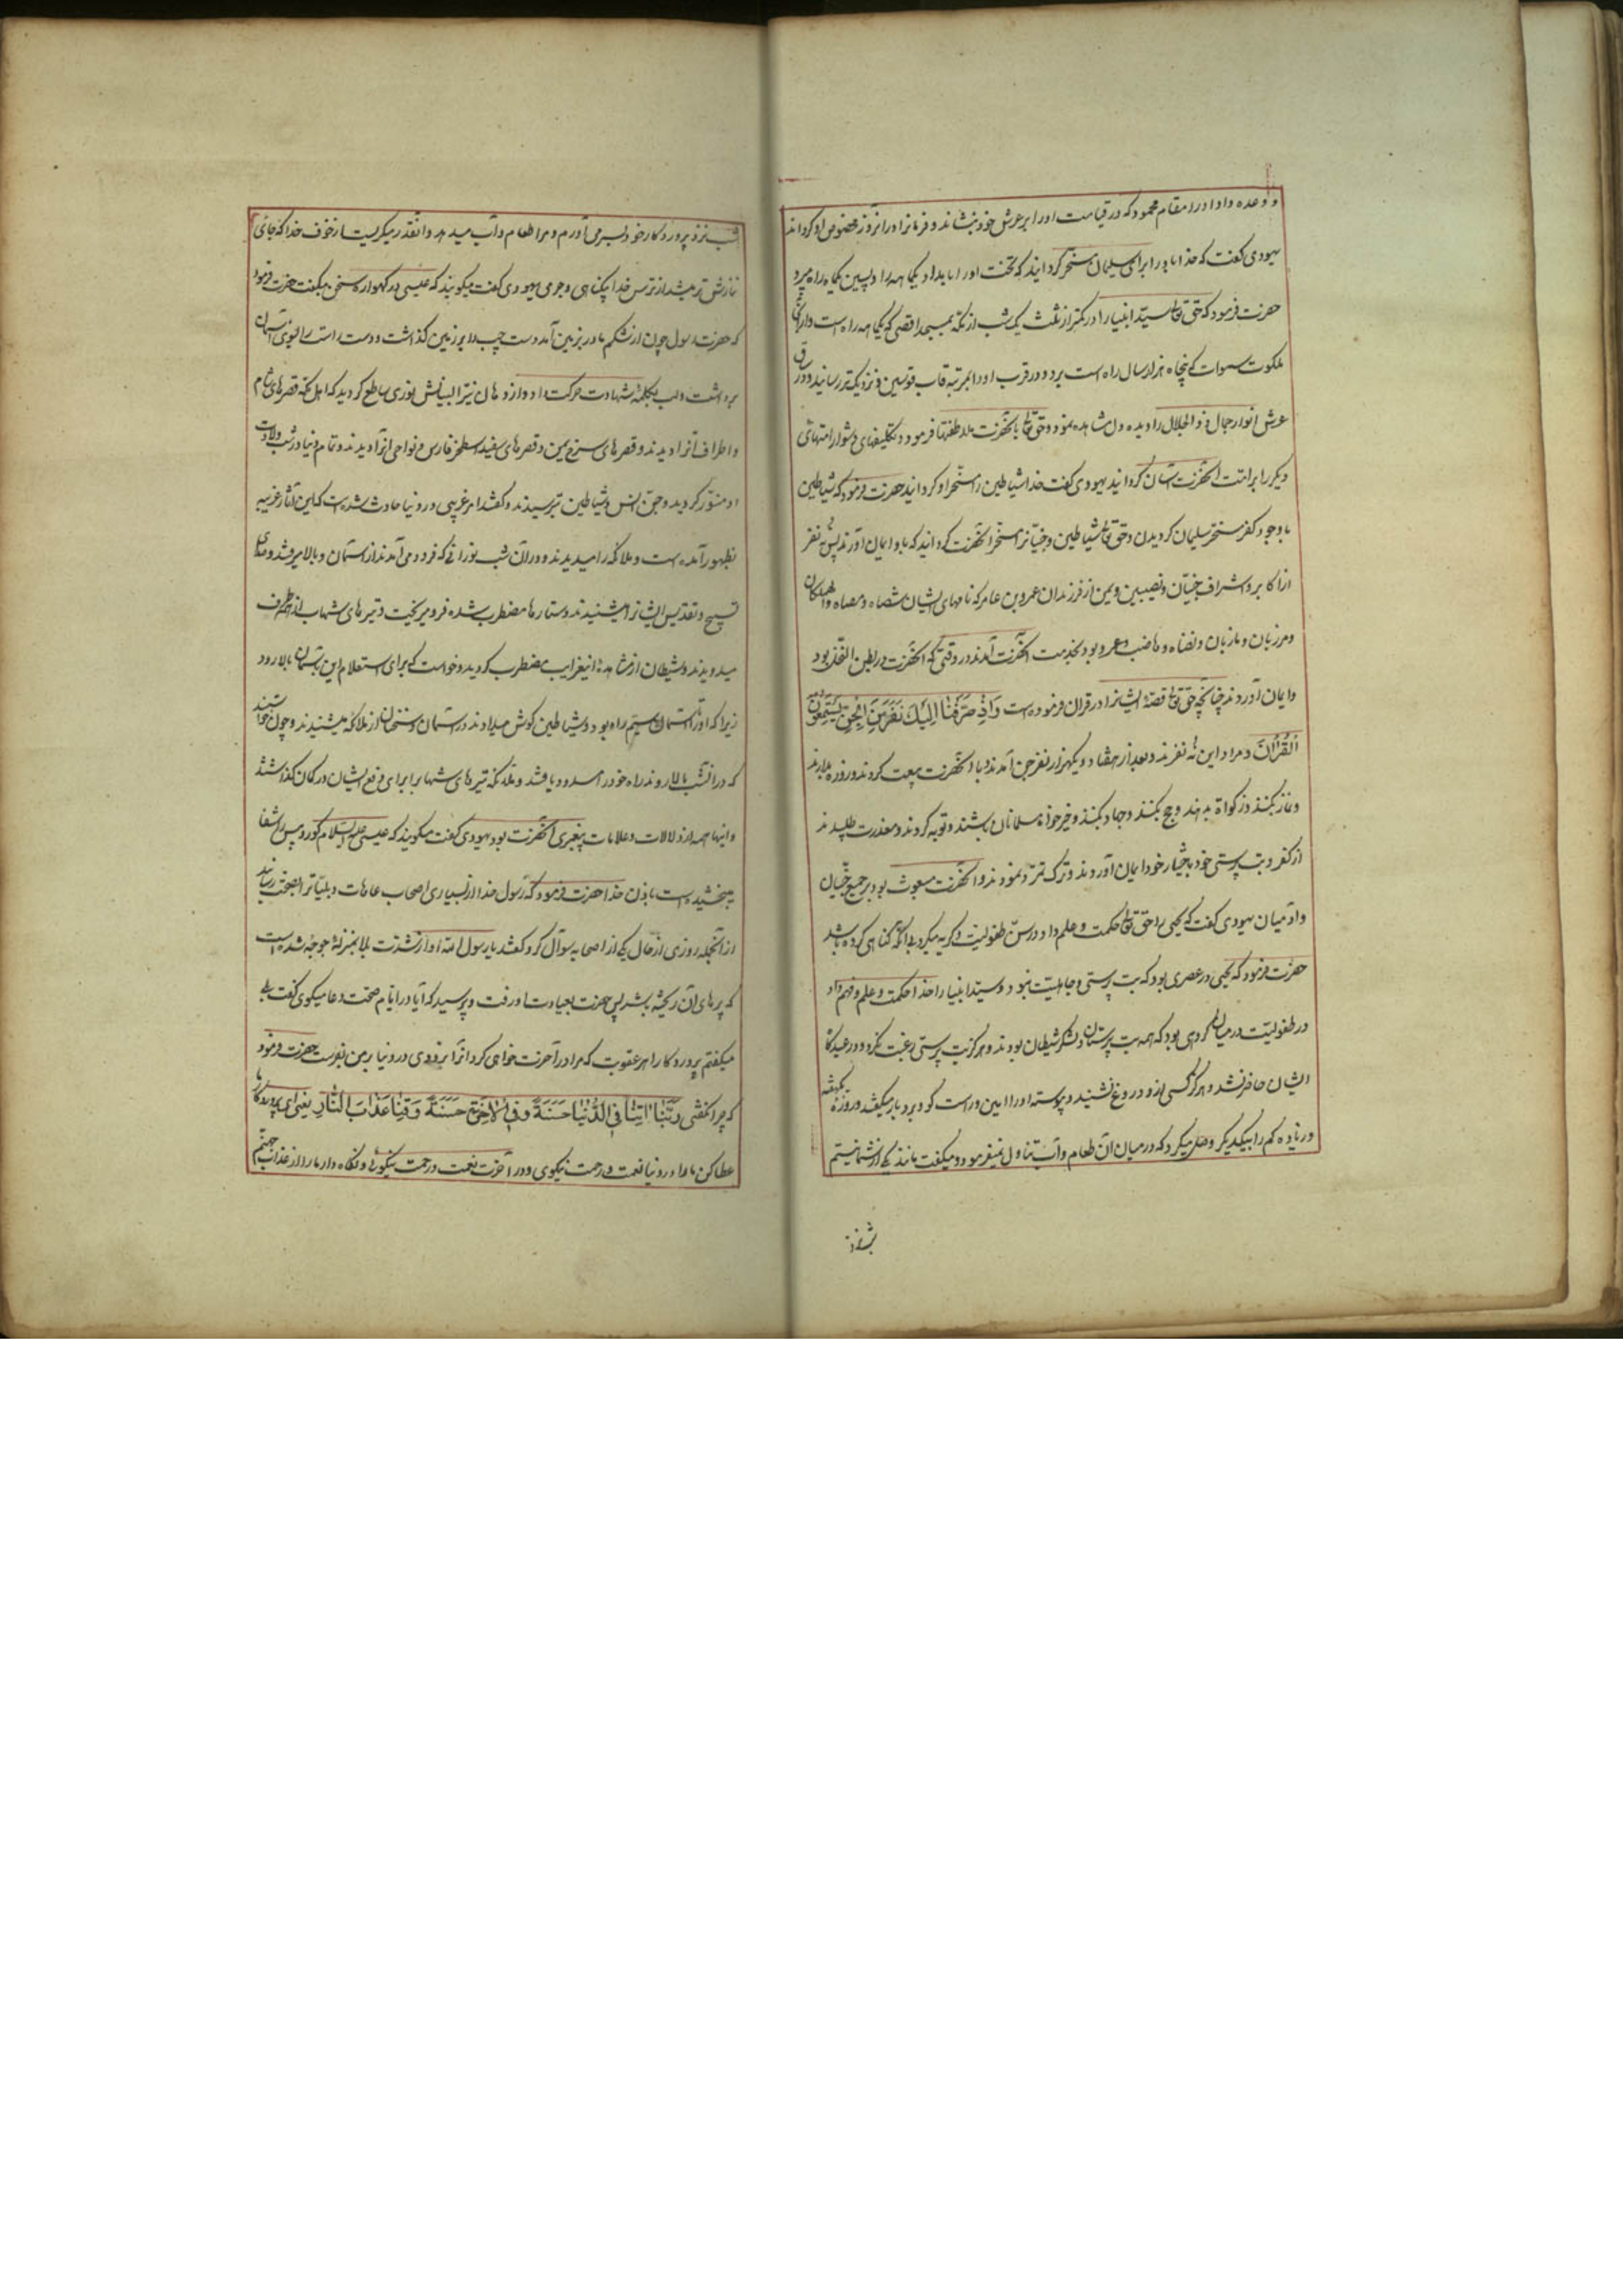 و وعده داد او را مقام محمود که در قیامت او را بر عرش خود بنشاند و فرمانرا در انروز مخصوص او کرداند
یهودی کفت که خدا باد را برای سلیمان مسخر کردانید که تخت او را بامداد یکماهه راه و پسین یکماه راه میبرد
حضرت فرمود که حق تعالی سید انبیا را در کمتر از ثلث یک شب از مکه بمسجد اقصی که یکماهه راه است و از آنجا
ملکوت سموات که پنجاه هزار سال راه است برد و در قرب او را بمرتبه قاب قوسین و نزدیکتر رسانید و در ساق
عرش انوار جمال ذو الجلال را بدیده دل مشاهده نمود و حق تعالی با آنحضرت ملاطفتها فرمود و تکلیفهای دشوار امتهای
دیکر را بر امت آنحضرت آسان کردانید یهودی کفت خدا شیاطین را مسخر او کردانید حضرت فرمود که شیاطین
با وجود کفر مسخر سلیمان کردیدن و حق تعالی شیاطین و جنیانرا مسخر آنحضرت کردانید که باو ایمان آوردند پس نه نفر
از اکابر و اشراف جنیان و نصیبین و یمن از فرزندان عمرو بن عامر که نامهای ایشان شصاه و مصاه و هملکان
و مرزبان و مازبان و نضاه و هاضب و عمرو بود بخدمت آنحضرت آمدند در وقتی که آنحضرت در بطن النخل بود
و ایمان آوردند چنانچه حق تعالی قصهٔ ایشانرا در قران فرموده است وَاِذْ صَرَفْنَا اِلَيْكَ نَفَرًا مِنَ الْجِنِّ يَسْتَمِعُونَ
الْقُرْآنَ و مراد این نه نفرند و بعد از هفتاد و یکهزار نفر جن آمدند و با آنحضرت بیعت کردند و روزه بدارند
و نماز بکنند و زکواة بدهند و حج بکنند و جهاد بکنند و خیرخواه مسلمانان باشند و توبه کردند و معذرت طلبیدند
از کفر و بت پرستی خود باختیار خود ایمان آوردند و ترک تمرد نمودند و آنحضرت مبعوث بود بر جمیع جنیان
و آدمیان یهودی کفت که یحیی را حق تعالی حکمت و علم داد در سن طفولیت و کریه میکرد بی آنکه کناهی کرده باشد
حضرت فرمود که یحیی در عصری بود که بت پرستی و جاهلیت نبود و سید انبیا را خدا حکمت و علم و فهم داد
در طفولیت در میان کروهی بود که همه بت پرستان و لشکر شیطان بودند و هرکز بت پرستی رغبت نکرد و در عیدکاه
ایشان حاضر نشد و هرکز کسی ازو دروغ نشنید و پیوسته او را امین و راست کو و بردبار میکفتند و روزهٔ یکهفته
و زیاده کم را بیکدیکر وصل میکرد که در میان آن طعام و آب تناول نمیفرمود و میکفت مانند یکی از شما نیستم
شب نزد
شب نزد پروردکار خود بسر می آورم و مرا طعام و آب میدهد و آنقدر میکریست از خوف خدا که جای
نمازش تر میشد از ترس خدا بیکناهی و جرمی یهودی کفت میکویند که عیسی در کهواره سخن میکفت حضرت فرمود
که حضرت رسول چون از شکم مادر بزمین آمد دست چپ را بر زمین کذاشت و دست راست را بسوی آسمان
برداشت و لب بکلمه شهادت حرکت داد و از دهان نیز البیانش نوری ساطع کردید که اهل مکه قصرهای شام
و اطراف آنرا دیدند و قصرهای سرخ یمن و قصرهای سفید اسطخر فارس و نواحی آنرا دیدند و تمام دنیا در شب ولادت
او منور کردید و جن و انس و شیاطین بترسیدند و کفتند امر غریبی در دنیا حادث شده است که این آثار غریبه
بظهور آمده است و ملائکه را میدیدند و در آن شب نورانی که فرود می آمدند از آسمان و بالا میرفتند و صدای
تسبیح و تقدیس ایشانرا میشنیدند و ستارها مضطرب شده فرو میریخت و تیرهای شهاب از هر طرف
میدویدند و شیطان از مشاهده این غرایب مضطرب کردید و خواست که برای استعلام این باسمان بالا رود
زیرا که او را در آسمان سیم راه بود و شیاطین کوش میدادند در آسمان و سخنان از ملائکه میشنیدند و چون خواستند
که در آنشب بالا روند راه خود را مسدود یافتند و ملائکه تیرهای شهابرا برای دفع ایشان در کمان کذاشتند
و اینها همه از دلالات و علامات پیغمبری آنحضرت بود یهودی کفت میکویند که عیسی علیه السلام کور و پیس را شفا
میبخشیده است باذن خدا حضرت فرمود که رسول خدا از بسیاری اصحاب عاهات و بلیاترا بصحت رسانید
از آنجمله روزی از حال یکی از اصحابه سوآل کرد کفتند یا رسول الله او از شدت بلا بمنزلهٔ جوجه شده است
که پرهای آن ریخته باشد پس حضرت بعیادت او رفت و پرسید که آیا در ایام صحت دعا میکوی کفت بلی
میکفتم پروردکارا هر عقوبت که مرا در آخرت خواهی کرد آنرا بزودی در دنیا بمن بفرست حضرت فرمود
که چرا نکفتی رَبَّنَا اٰتِنَا فِي الدُّنْيَا حَسَنَةً وَفِي الْاٰخِرَةِ حَسَنَةً وَقِنَا عَذَابَ النَّارِ یعنی ای پروردکار ما
عطا کن ما را در دنیا نعمت و رحمت نیکوی و در آخرت نعمت و رحمت نیکوئی و نکاه دار ما را از عذاب جهنم